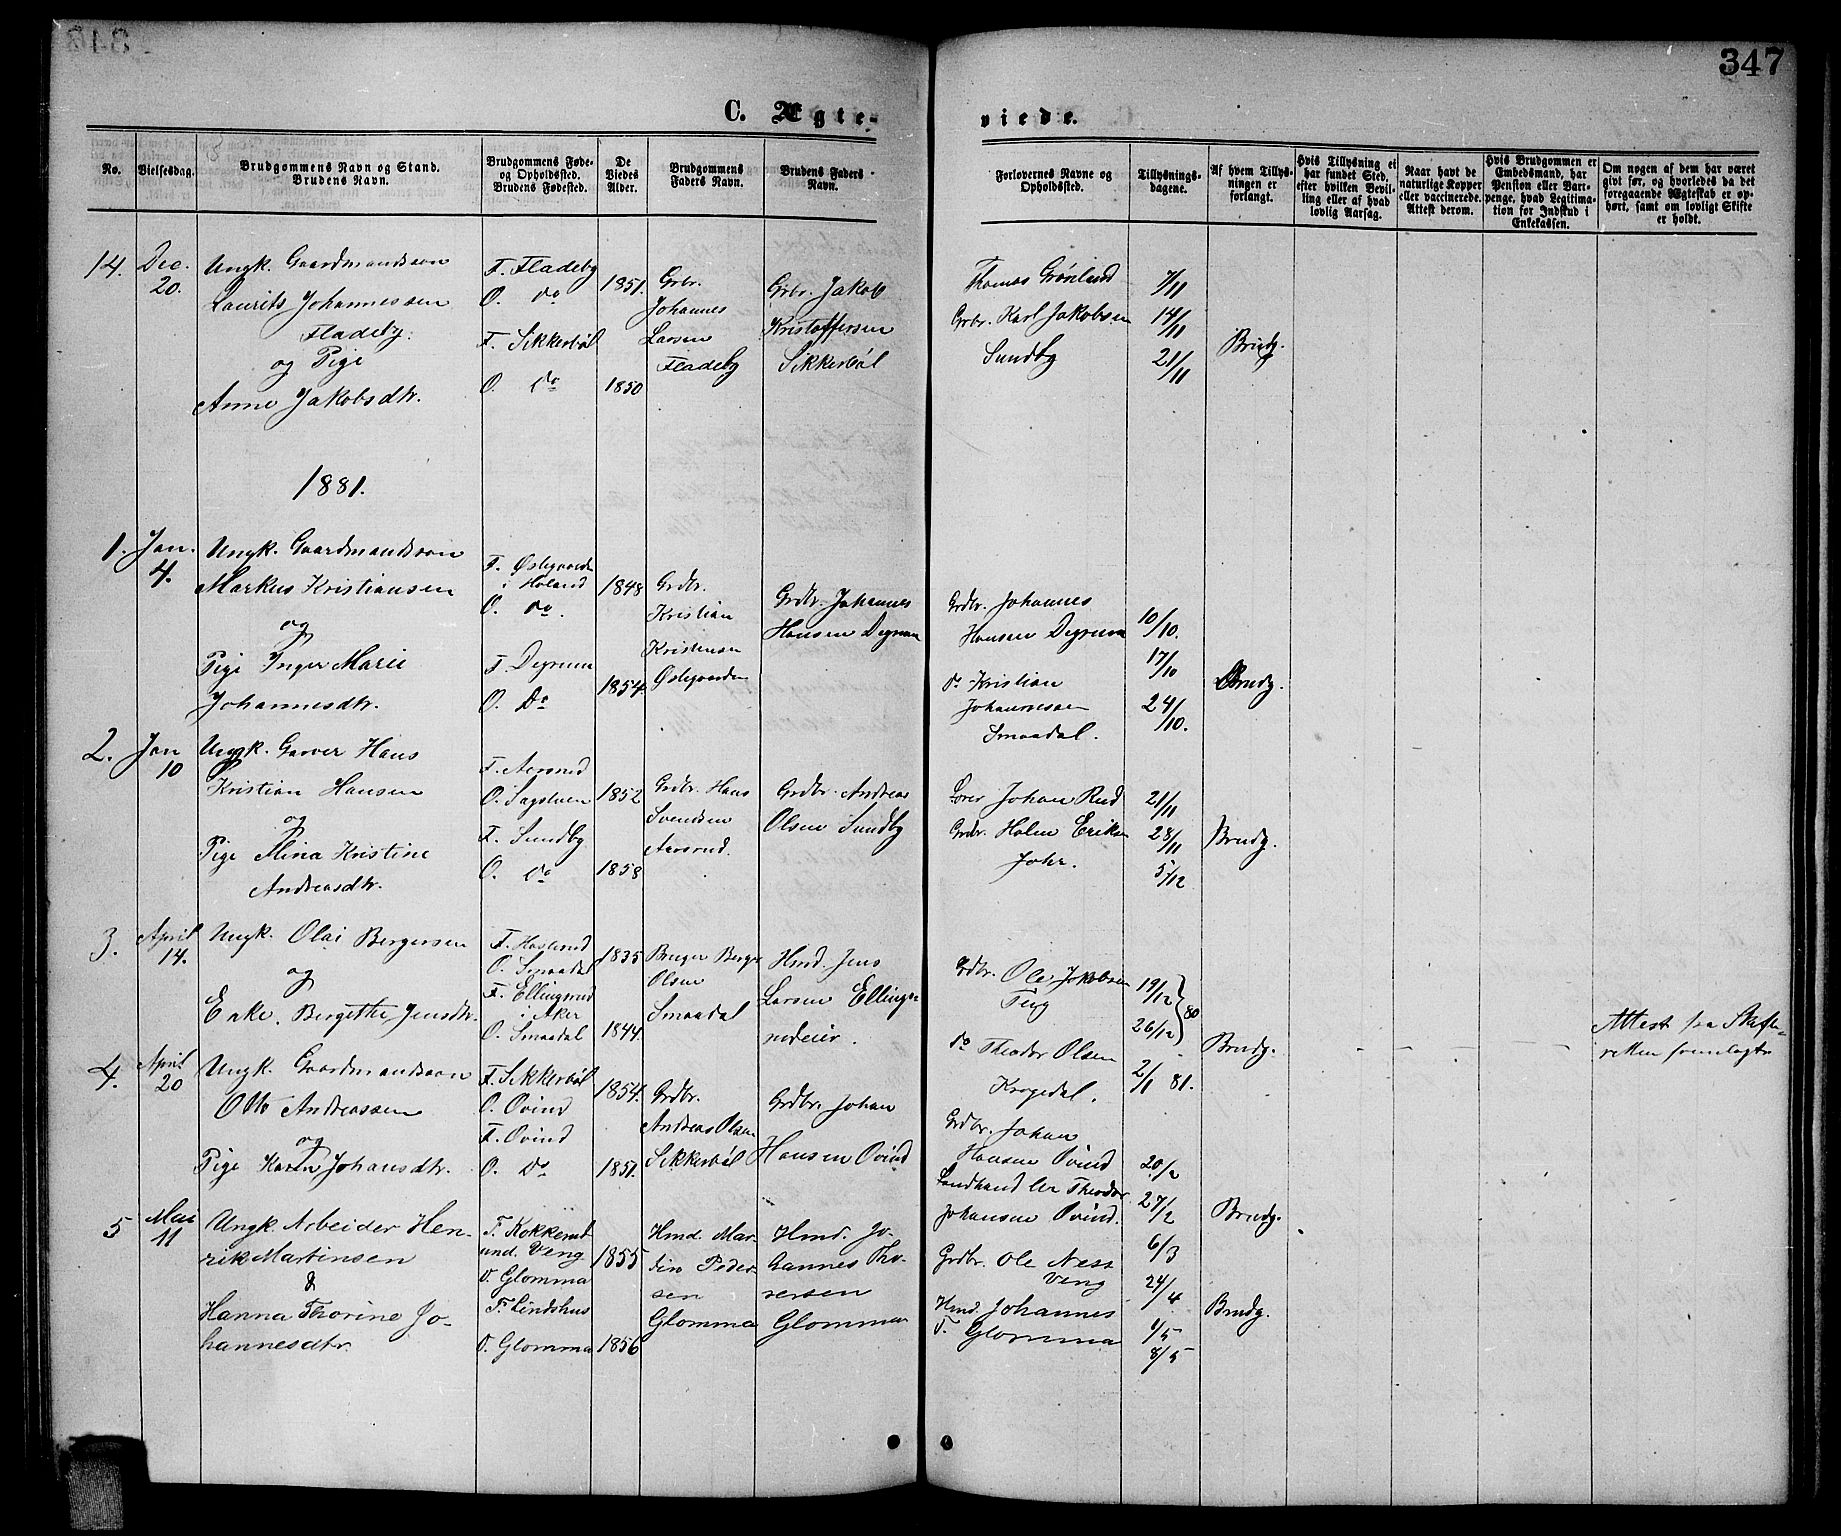 347
C. Ægte-
viede.
No.
Vielsesdag.
Brudgommens Navn og Stand.
Brudens Navn.
Brudgommens Føde-
og Opholdsted.
Brudens Fødested.
De
Viedes
Alder.
Brudgommens
Faders Navn.
Brudens Faders
Navn.
Forlovernes Navne og
Opholdsted.
Tillysnings-
dagene.
Af hvem Tillys-
ningen er
forlangt.
Hvis Tillysning ei
har fundet Sted,
efter hvilken Bevil-
ling eller af hvad
lovlig Aarsag.
Naar havt de
naturlige Kopper
eller vaccinerede.
Attest derom.
Hvis Brudgommen er
Embedsmand, har
Pension eller Vart-
penge, hvad Legitima-
tion for Indskud i
Enkekassen.
Om nogen af dem har været
givt før, og hvorledes da det
foregaaende Ægteskab er op-
hørt, samt om lovligt Skifte
er holdt.
14.
Dec.
20.
Ungk. Gaardmandssøn
Laurits Johannessen
Fladeby.
og Pige
Anne Jakobsdtr.
F. Fladeby
O. do
F. Sikkerbøl
O. do
1851.
1850
Grbr.
Johannes
Larsen
Fladeby
Grbr. Jakob
Kristoffersen
Sikkerbøl
Thomas Grønlund
Grbr. Karl Jakobsen
Sundby
7/11
14/11
21/11
Brudg.
1881.
1.
Jan.
4.
Ungk. Gaardmandssøn
Markus Kristiansen
og
Pige Inger Marie
Johannesdtr.
F. Østegaarden
i Høland
O. do.
F. Degrum
O. Do
1848
1854.
Grdbr.
Kristian
Kristensen
Østegaarden
Grdbr. Johannes
Hansen Degrum
Grdbr. Johannes
Hansen Degrum
do Kristian
Johannessen
Smaadal.
10/10.
17/10
24/10.
Brudg.
2.
Jan
10
Ungk. Garver Hans
Kristian Hansen
og
Pige Mina Kristine
Andreasdtr.
F. Aasrud
O. Sagstuen
F. Sundby
O. do
1852
1858
Grdbr. Hans
Svendsen
Aasrud.
Grdbr. Andreas
Olsen Sundby
Johan Rud
Grdbr. Holm Eriksen
21/11
28/11
5/12
Brudg.
3.
April
14.
Ungk. Olai Bergersen
og
Enke. Bergitthe Jensdtr.
F. Haslerud
O. Smaadal
F. Ellingsrud
i Aker
O. Smaadal
1835
1844.
Bruger Berger
Olsen
Smaadal
Hmd. Jens
Larsen Ellings-
rudeier.
Grdbr. Ole Jakobsen
do Theodor Olsen
Krogedal.
19/12
26/12 } 80
2/1 81.
Brudg.
Attest fra Skifte-
retten fremlagt
4.
April
20
Ungk. Gaardmandssøn
Otto Andreassen
og
Pige Karen Johansdtr.
F. Sikkerbøl
O. Ovind
F. Ovind
O. Do
1854.
1851.
Grdbr.
Andreas Olsen
Sikkerbøl
Grdbr. Johan
Hansen Ovind
Grdbr. Johan
Hansen Ovind
Landhandler Theodor
Johansen Ovind.
20/2
27/2
6/3
Brudg.
5
Mai
11
Ungk. Arbeider Hen-
rik Martinsen
&
Hanna Thorine Jo-
hannesdtr.
F. Kokkerud
und. Veng
O. Glomma
F. Lindshus
O. Glomma
1855
1856
Hmd. Mar-
tin Peder-
sen
Glomma
Hmd. Jo-
hannes Tho-
resen
Glomma
Grdbr. Ole Ness
Veng
Hmd. Johannes
T. Glomma
24/4
1/5
8/5
Brudg.